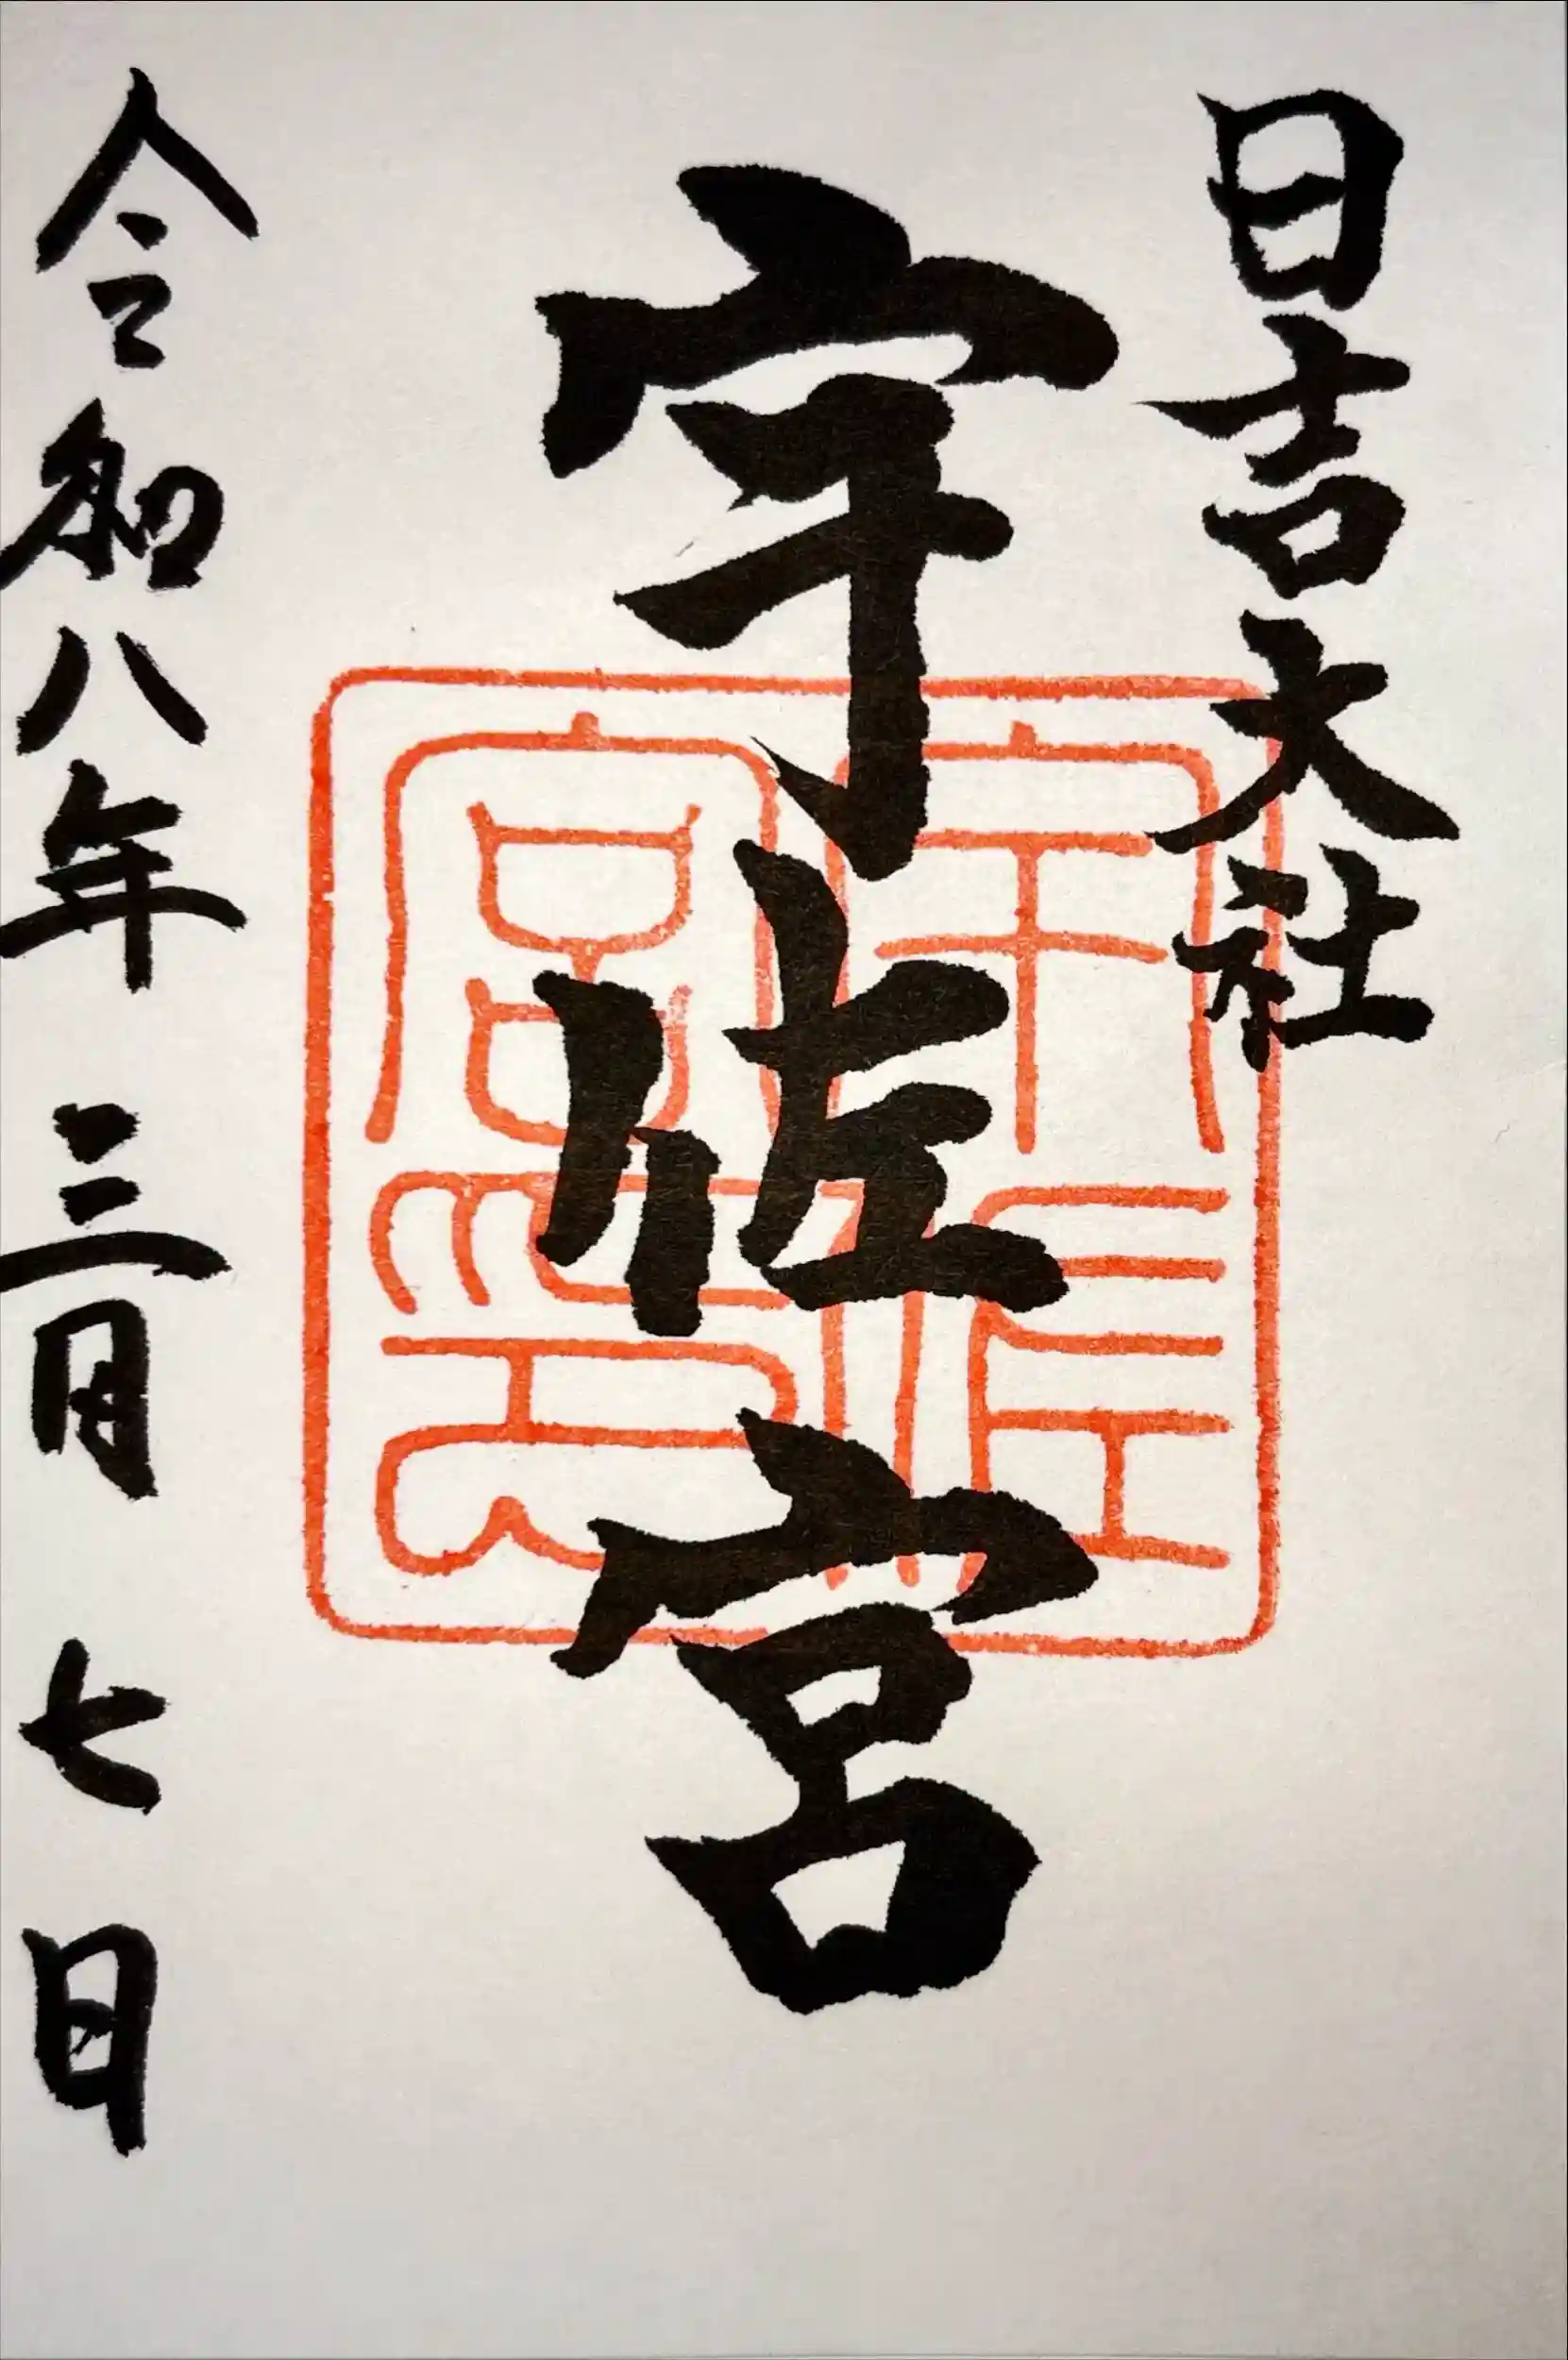 日吉大社
宇佐宮
令和八年三月七日
宇佐
宮印